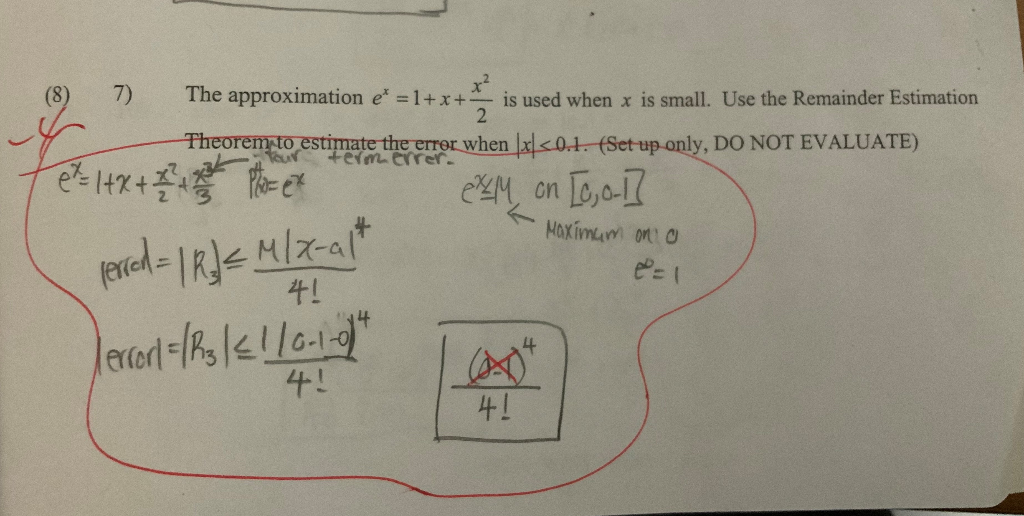 (8) 7) The approximation e^x = 1 + x + x²/2 is used when x is small. Use the Remainder Estimation
-4
Theorem to estimate the error when |x| < 0.1. (Set up only, DO NOT EVALUATE)
four term error.
e^x = 1 + x + x²/2 + x³/3 = e^x
e^x ≤ M on [0, 0.1]
Maximum on 0
e^0 = 1
|error| = |R₃| ≤ M|x-a|^4 / 4!
|error| = |R₃| ≤ 1|0.1-0|^4 / 4!
(0.1)^4 / 4!